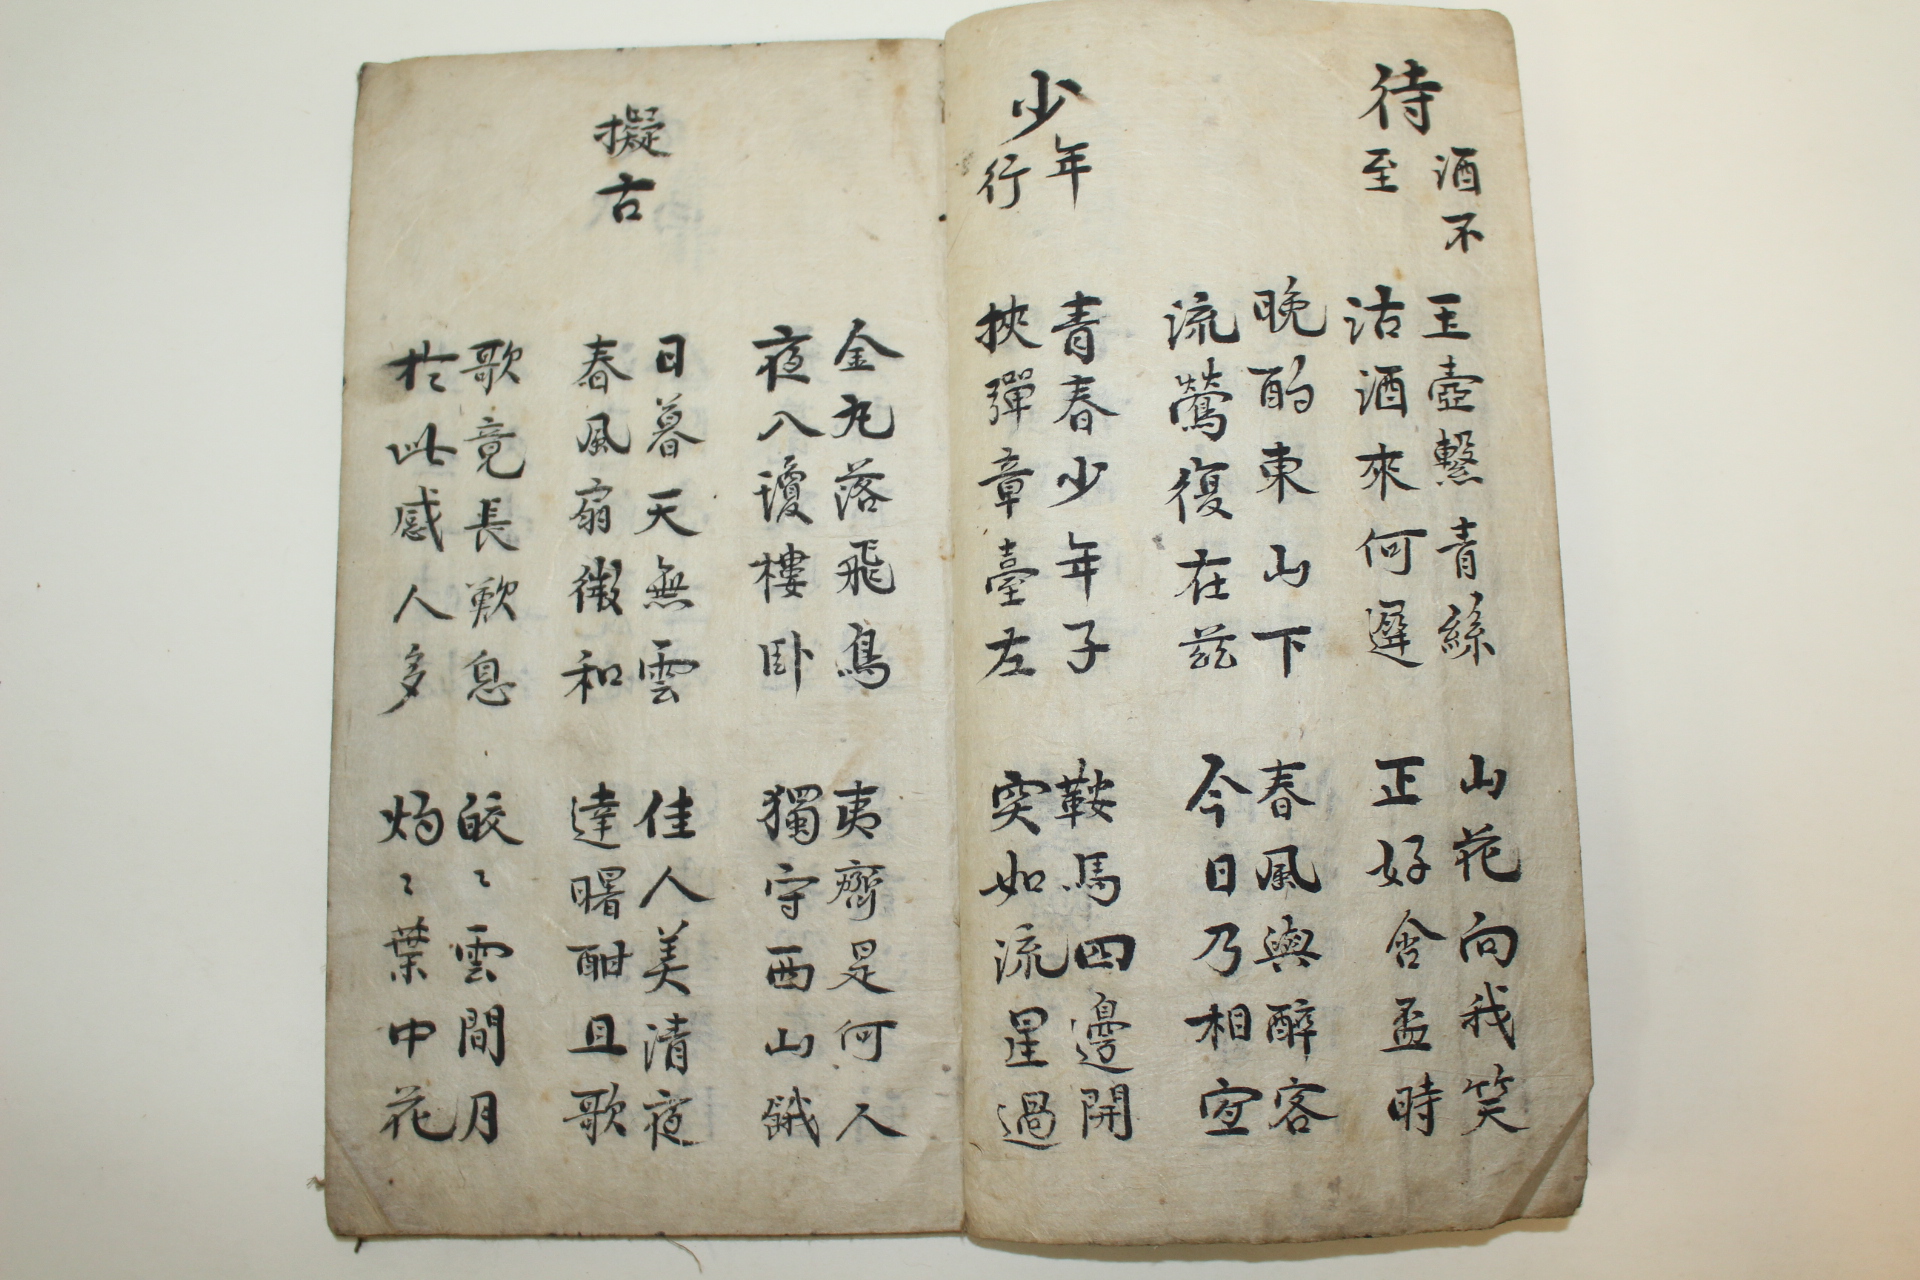 待酒不至
玉壺繫青絲
沽酒來何遲
山花向我笑
正好含盃時
晩酌東山下
流鶯復在玆
春風與醉客
今日乃相宜
少年行
青春少年子
挾彈章臺左
鞍馬四邊開
突如流星過
金丸落飛鳥
夜入瓊樓卧
夷齊是何人
獨守西山餓
擬古
日暮天無雲
春風扇微和
佳人美清夜
達曙酣且歌
歌竟長歎息
於此感人多
皎〻雲間月
灼〻葉中花